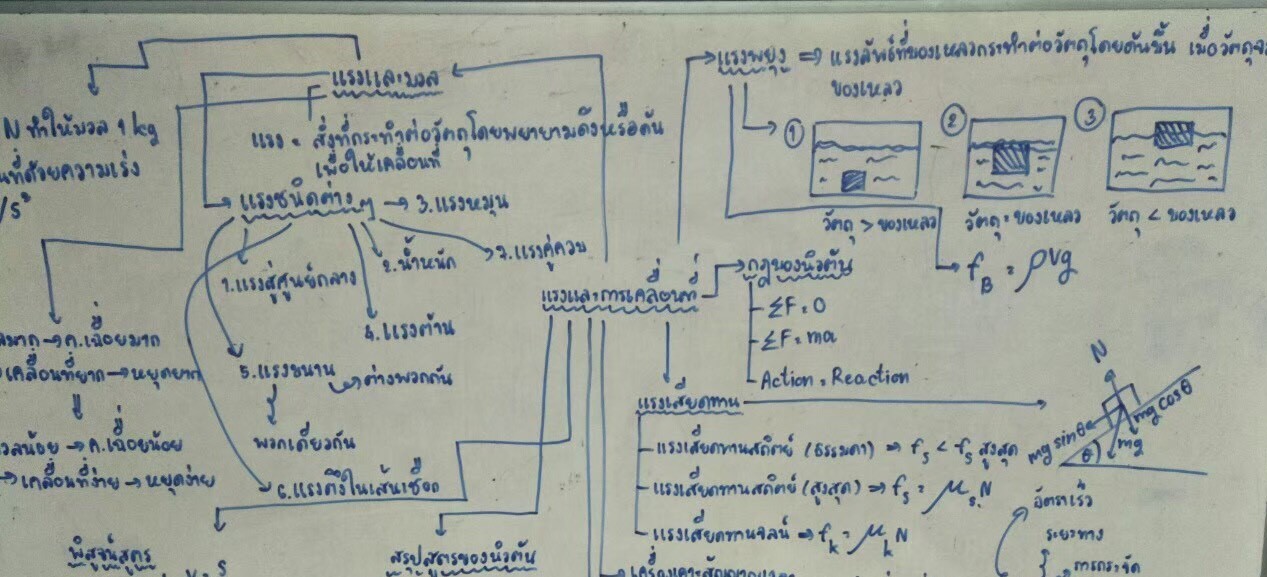 แรงและมวล
N ทำให้มวล 1 kg
นที่ด้วยความเร่ง
/s²
แรง = สิ่งที่กระทำต่อวัตถุโดยพยายามดึงหรือดัน
เพื่อให้เคลื่อนที่
แรงชนิดต่างๆ
1.แรงสู่ศูนย์กลาง
2.น้ำหนัก
3.แรงหมุน
4.แรงต้าน
5.แรงขนาน
ต่างพวกกัน
พวกเดียวกัน
6.แรงตึงในเส้นเชือก
7.แรงคู่ควบ
ลมาก → ค.เฉื่อยมาก
เคลื่อนที่ยาก → หยุดยาก
วลน้อย → ค.เฉื่อยน้อย
→ เคลื่อนที่ง่าย → หยุดง่าย
แรงและการเคลื่อนที่
แรงพยุง ⇒ แรงลัพธ์ที่ของเหลวกระทำต่อวัตถุโดยดันขึ้น เมื่อวัตถุจ
ของเหลว
① ② ③
วัตถุ > ของเหลว
วัตถุ = ของเหลว
วัตถุ < ของเหลว
f_B = ρvg
กฎของนิวตัน
- ΣF = 0
- ΣF = ma
- Action = Reaction
แรงเสียดทาน
- แรงเสียดทานสถิตย์ (ธรรมดา) ⇒ f_s < f_s สูงสุด
- แรงเสียดทานสถิตย์ (สูงสุด) ⇒ f_s = μ_s N
- แรงเสียดทานจลน์ ⇒ f_k = μ_k N
N
mg cosθ
mg sinθ
θ
mg
อัตราเร็ว
ระยะทาง
การกระจัด
พิสูจน์สูตร
สรุปสูตรของนิวตัน